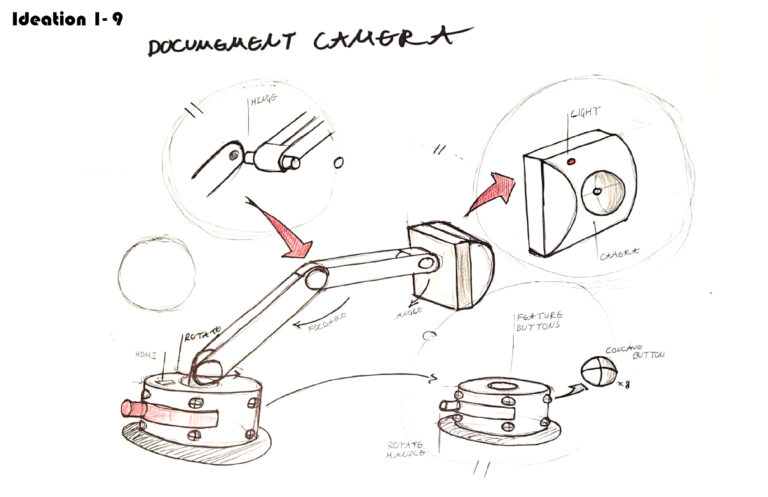 Ideation 1-9
DOCUMEMENT CAMERA
HINGE
LIGHT
CAMERA
ROTATE
HDMI
FOLDABLE
ANGLE
FEATURE
BUTTONS
CONCAVE
BUTTON
x8
ROTATE
HANDLE